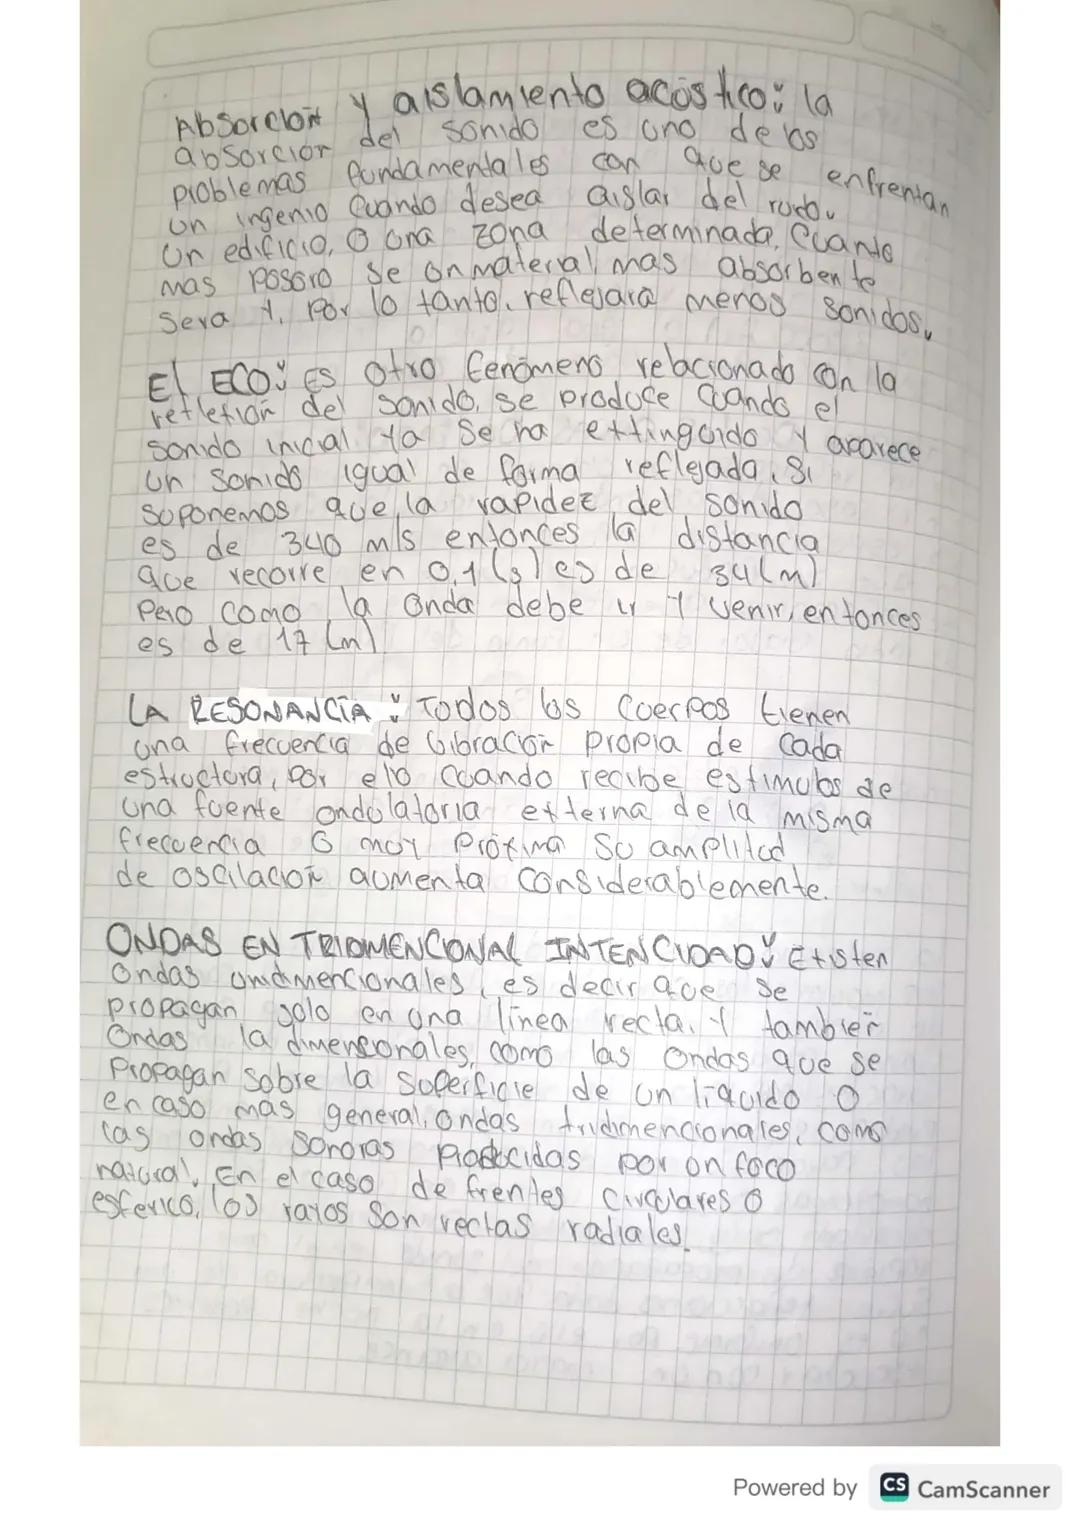 Absorción y aislamiento acústico: la
absorción del sonido es uno de los
problemas fundamentales con que se enfrentan
un ingenio cuando desea aislar del ruido.
Un edificio, o una zona determinada, Cuanto
mas posoro se un material, mas absorbente
sera y, Por lo tanto, reflejará menos sonidos.
El ECO: Es otro fenómeno relacionado con la
reflexión del sonido, se produce cuando el
sonido inicial ya se ha extinguido y aparece
un sonido igual de forma reflejada, Si
suponemos que la rapidez del sonido
es de 340 m/s entonces la distancia
que recorre en 0,1 (s) es de 34(m)
Pero como la onda debe ir y venir, entonces
es de 17 (m)
LA RESONANCIA: Todos los cuerpos tienen
una frecuencia de vibración propia de cada
estructura, por ello cuando recibe estimulos de
una fuente ondulatoria externa de la misma
frecuencia o muy próxima su amplitud
de oscilación aumenta considerablemente.
ONDAS EN TRIDMENCIONAL INTENCIDAD: Existen
ondas unidimencionales, es decir que se
propagan solo en una línea recta, y también
Ondas la dimensionales, como las ondas que se
Propagan sobre la superficie de un líquido o
en caso mas general, ondas tridimencionales, como
las ondas sonoras producidas por un foco
natural. En el caso de frentes circulares o
esferico, los rayos son rectas radiales.
Powered by CS CamScanner